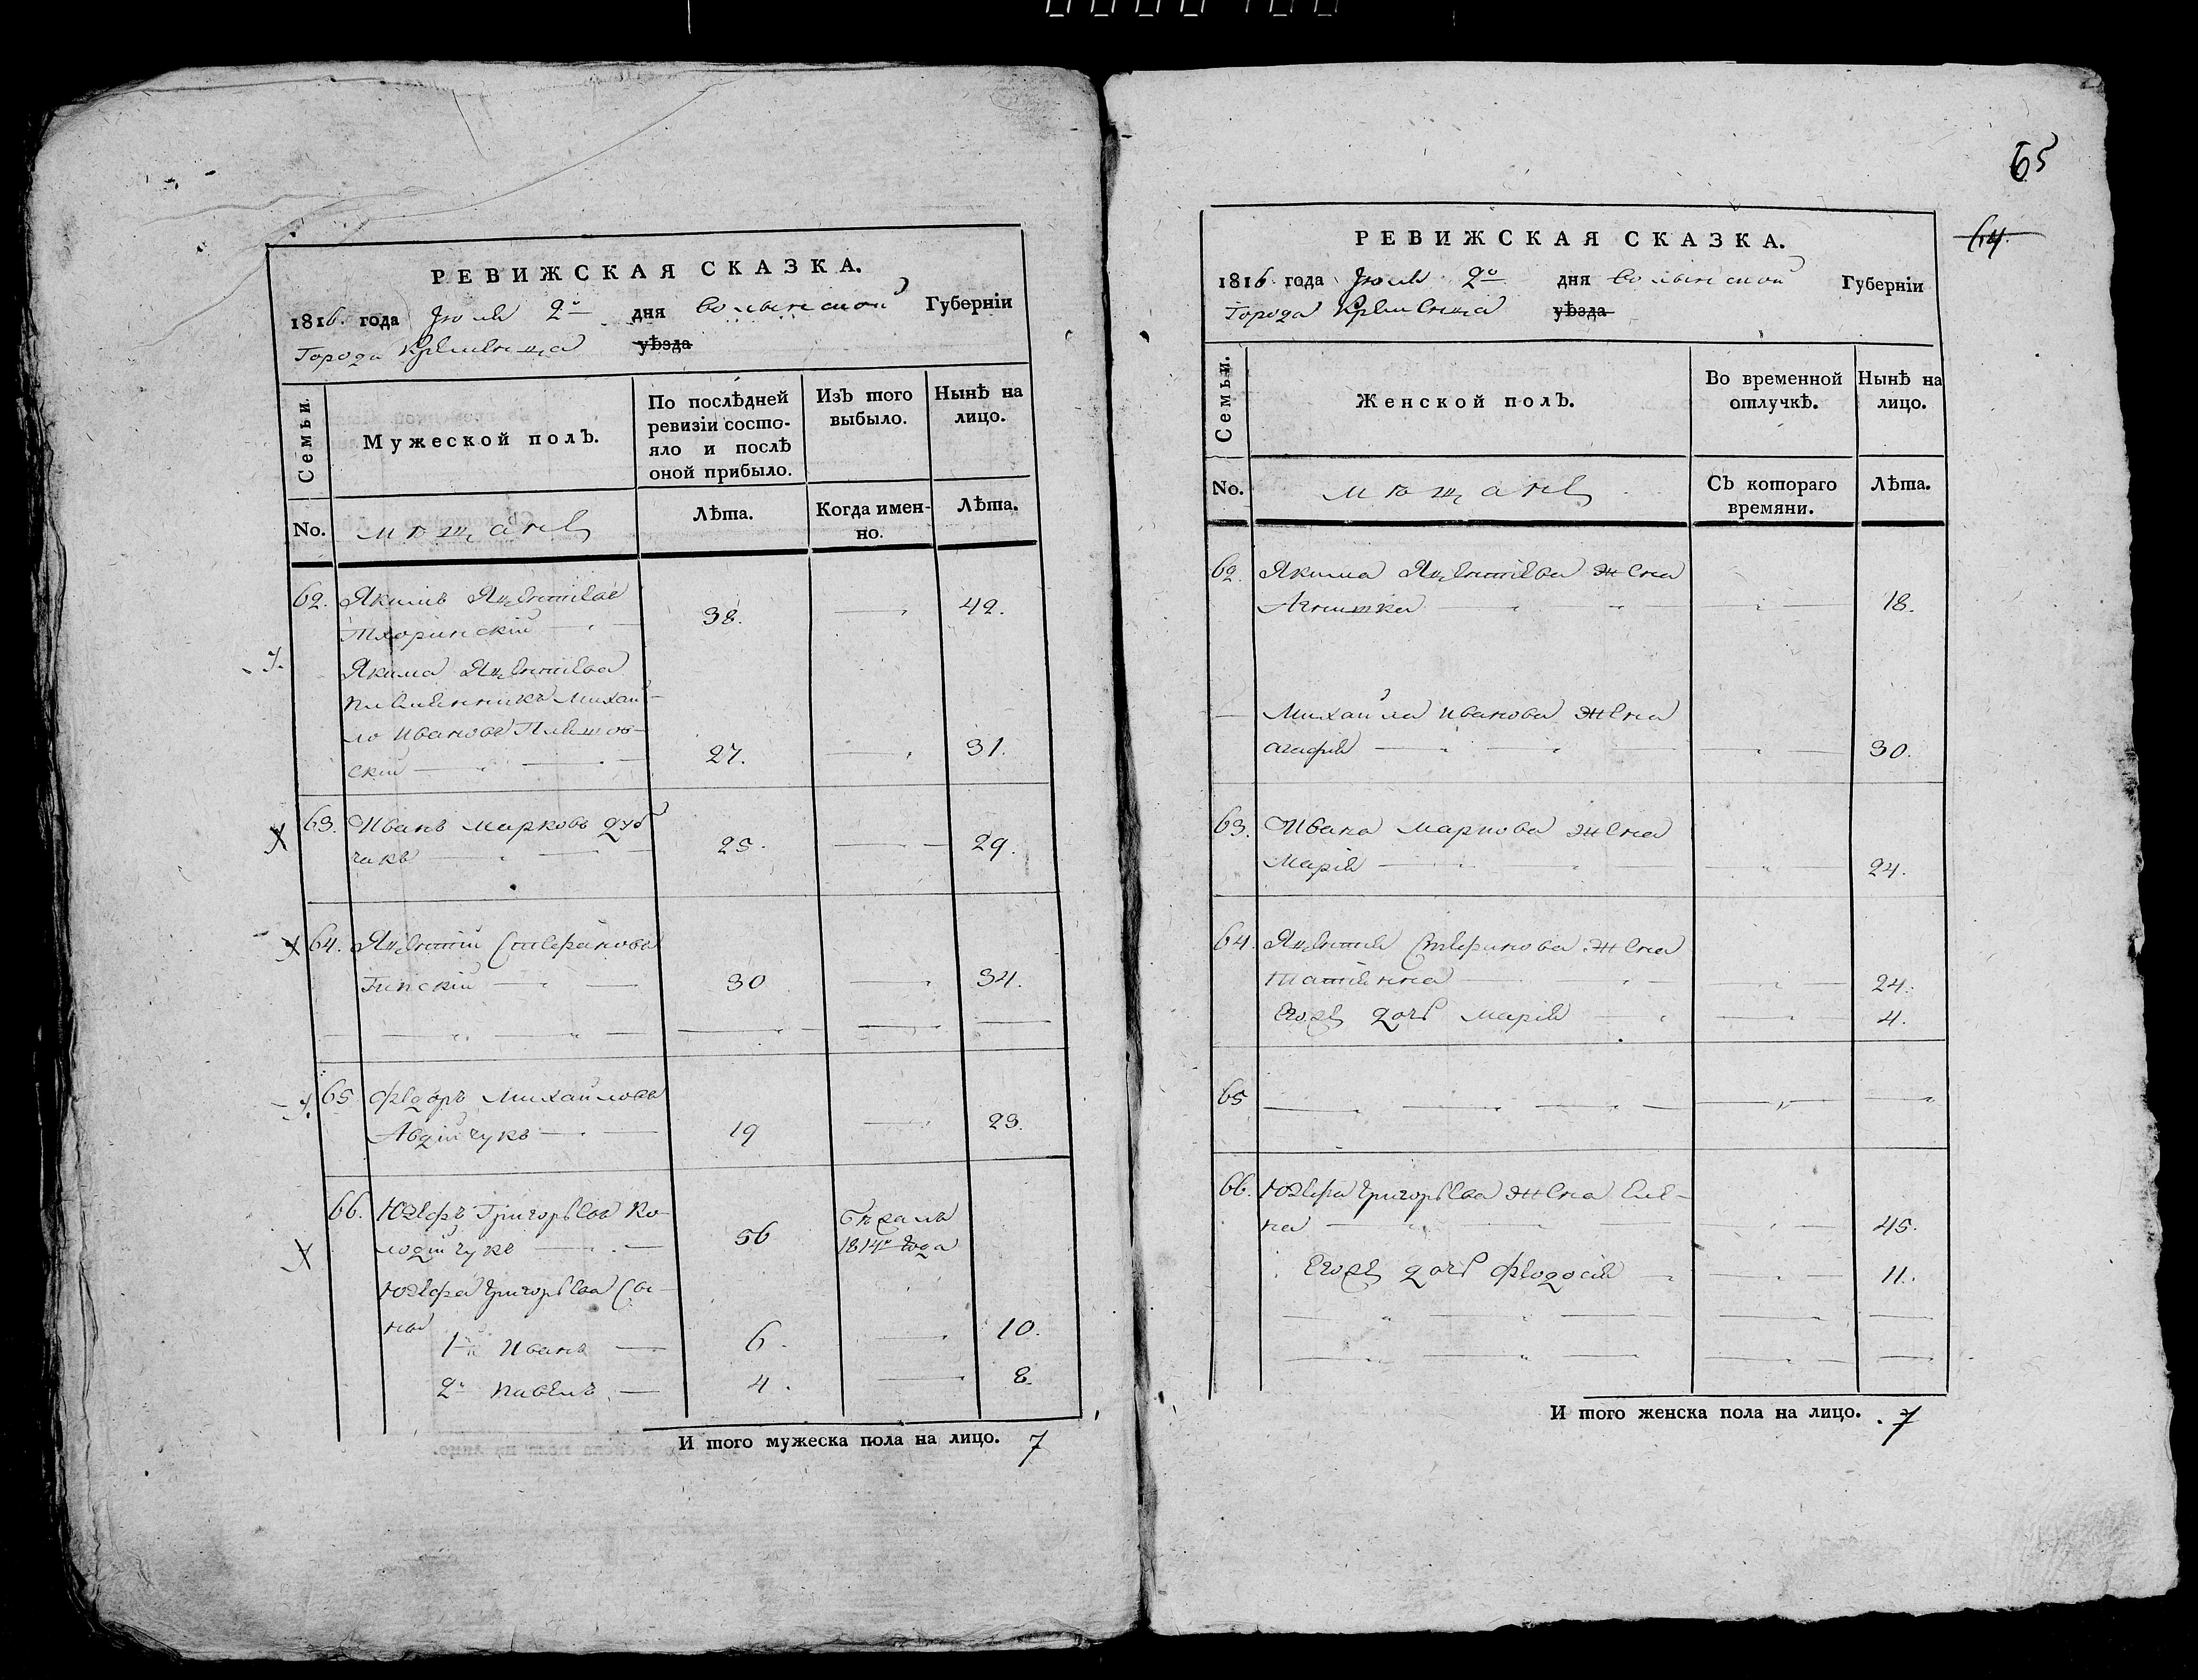 РЕВИЖСКАЯ СКАЗКА.
1816. года Июля 2го дня Волынской Губерніи
Города Кременца уѣзда
Семьи.
Мужеской полЪ.
По послѣдней ревизіи состо-
яло и послѣ
оной прибыло.
ИзЪ того
выбыло.
Нынѣ на
лицо.
No.
мѣщане
Лѣта.
Когда имен-
но.
Лѣта.
62. Якимъ
38. 42.
Якима
племенникъ Михай-
ло Ивановъ
скій 27. 31.
63. Иванъ Марковъ Дуб
чакъ 25. 29.
64. Стефановъ
30 34.
65 Федоръ Михайловъ
Авдійчукъ 19 23.
66. Юзефъ Григорьевъ Ко-
лодійчукъ 56 Бежалъ
1814го года
Юзефа Григорьева Сы-
ны
1й Иванъ 6. 10.
2й Павелъ 4. 8.
И того мужеска пола на лицо. 7
65
64.
РЕВИЖСКАЯ СКАЗКА.
1816 года Июля 2го дня Волынской Губерніи
Города Кременца уѣзда
Семьи.
Женской полЪ.
Во временной
отлучкѣ.
Нынѣ на
лицо.
No.
мѣщане
СЪ котораго
времяни.
Лѣта.
62. Якима жена
18.
Михайла Иванова жена
Агафия 30.
63. Ивана Маркова жена
Марія 24.
64. Стефанова жена
Татіянна 24.
Егоже дочь Марія 4.
65
66. Юзефа Григорьева жена Еле-
на 45.
Егоже дочь Феодосія 11.
И того женска пола на лицо. 7